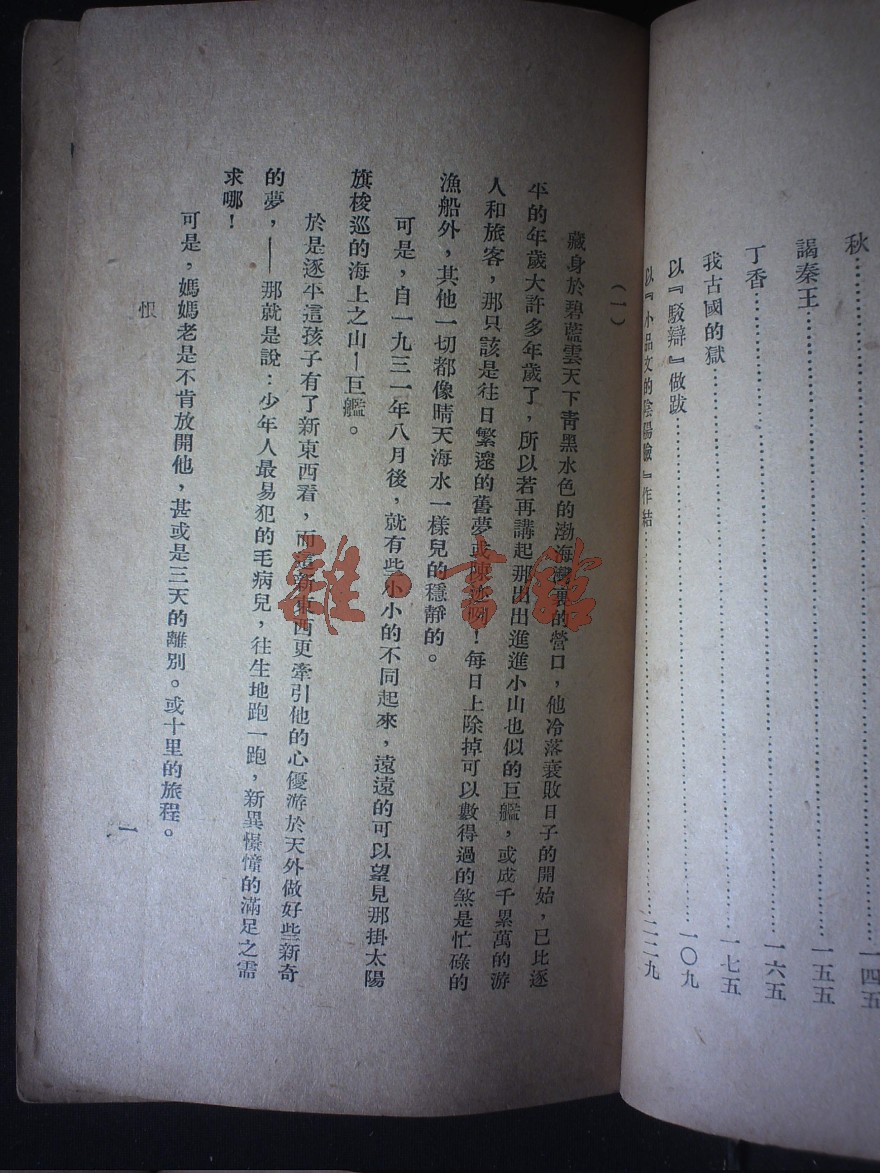 秋……一四五
謁秦王……一五五
丁香……一六五
我古國的獄……一七五
以『駁辯』做跋……一〇九
以『小品文的陰陽臉』作結……二二九
(一)
藏身於碧藍雲天下靑黑水色的渤海灣裏的營口，他冷落衰敗日子的開始，已比逐
平的年歲大許多年歲了，所以若再講起那出出進進小山也似的巨艦，或成千累萬的游
人和旅客，那只該是往日繁邃的舊夢或陳迹咧！每日上除掉可以數得過的煞是忙碌的
漁船外，其他一切都像晴天海水一樣兒的穩靜的。
可是，自一九三一年八月後，就有些小小的不同起來，遠遠的可以望見那掛太陽
旗梭巡的海上之山—巨艦。
於是逐平這孩子有了新東西看，而這新東西更牽引他的心優游於天外做好些新奇
的夢，——那就是說：少年人最易犯的毛病兒，往生地跑一跑，新異憬憧的滿足之需
求哪！
可是，媽媽老是不肯放開他，甚或是三天的離別。或十里的旅程。
恨
一
雜·書館